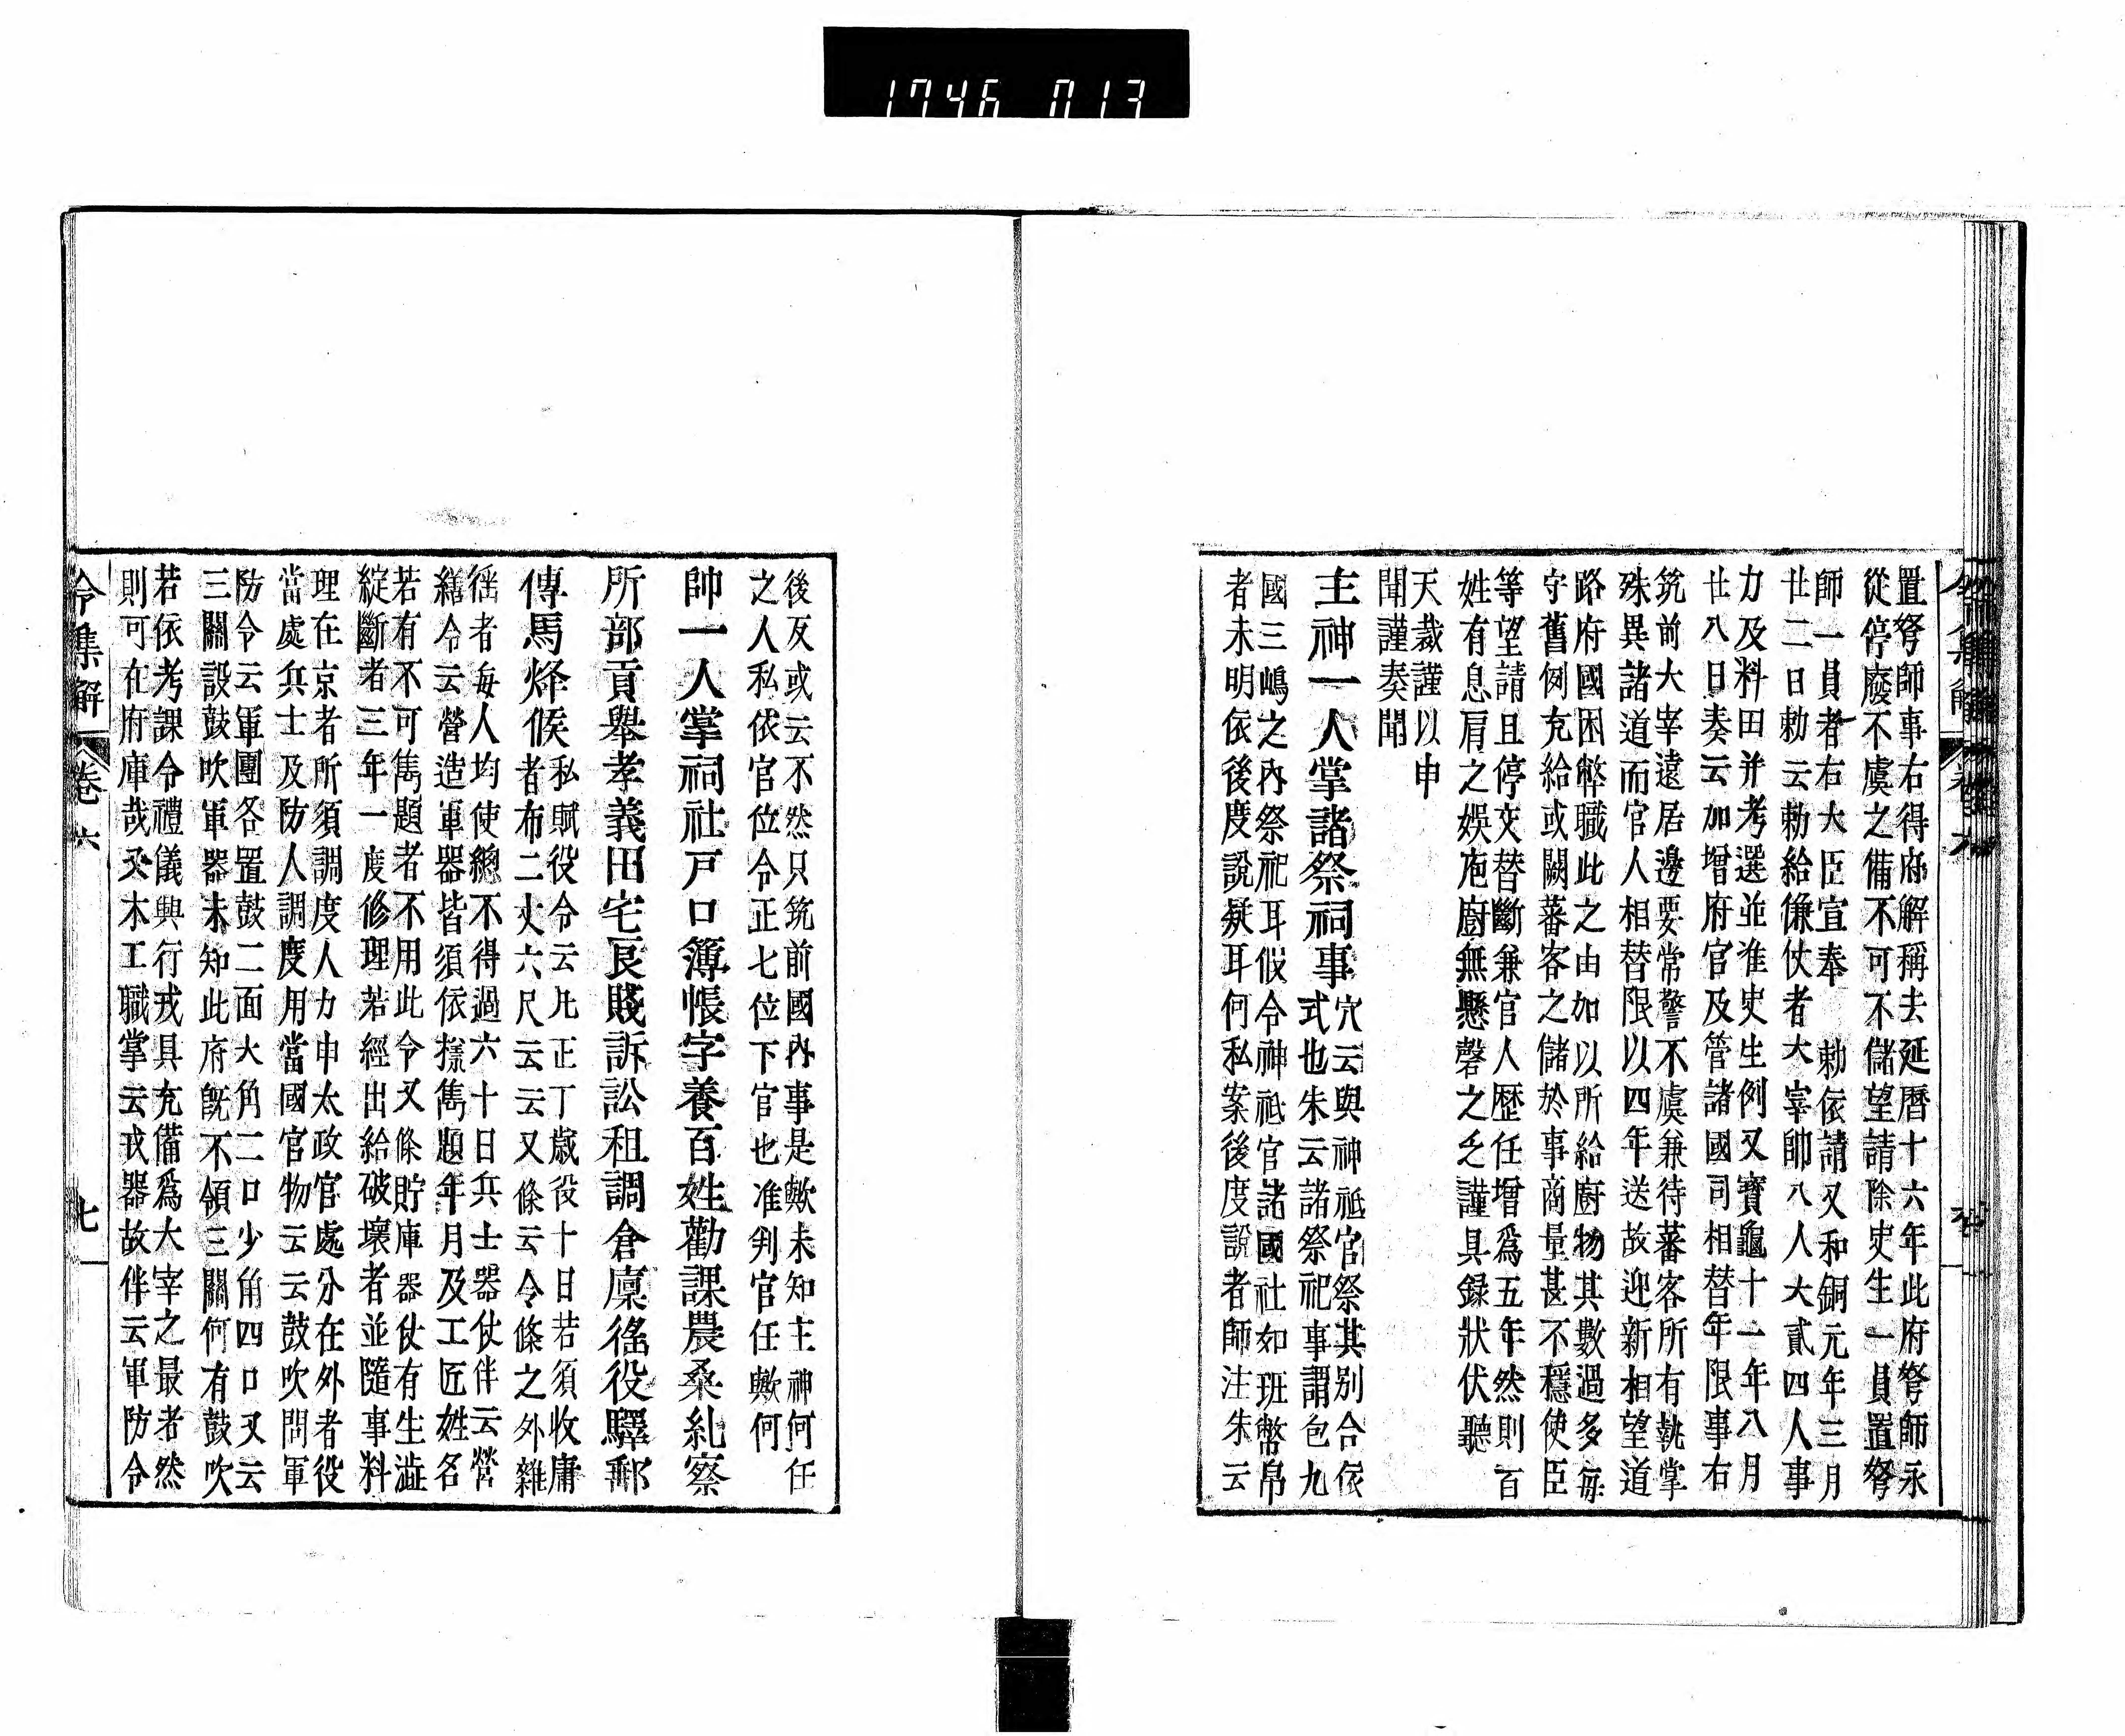 1746 013
置弩師事右得府解稱去延曆十六年此府弩師永
從停廢不虞之備不可不儲望請除史生一員置弩
師一員者右大臣宣奉 勅依請又和銅元年三月
廿二日勅云勅給傔仗者大宰帥八人大貳四人事
力及料田并考選並准史生例又寶龜十一年八月
廿八日奏云加增府官及管諸國司相替年限事右
筑前大宰遠居邊要常警不虞兼待蕃客所有執掌
殊異諸道而官人相替限以四年送故迎新相望道
路府國困弊職此之由加以所給廚物其數過多每
守舊例充給或闕蕃客之儲於事商量甚不穩使臣
等望請且停交替斷兼官人歷任增爲五年然則百
姓有息肩之娛庖廚無懸磬之乏謹具錄狀伏聽
天裁謹以申
聞謹奏聞
主神一人掌諸祭祠事
穴云與神祗官祭其別合依
式也朱云諸祭祀事謂包九
國三嶋之內祭祀耳假令神祗官諸國社如班幣帛
者未明依後度說疑耳何私案後度說者師注朱云
後反或云不然只筑前國內事是歟未知主神何任
之人私依官位令正七位下官也准判官任歟何
帥一人掌祠社戸口簿帳字養百姓勸課農桑糺察
所部貢舉孝義田宅良賤訴訟租調倉廩徭役驛郵
傳馬烽候
私賦役令云凡正丁歲役十日若須收庸
者布二丈六尺云云又條云令條之外雜
徭者每人均使總不得過六十日兵士器仗伴云營
繕令云營造軍器皆須依樣鐫題年月及工匠姓名
若有不可鐫題者不用此令又條貯庫器仗有生澁
綻斷者三年一度修理若經出給破壞者並隨事料
理在京者所須調度人力申太政官處分在外者役
當處兵士及防人調度用當國官物云云鼓吹問軍
防令云軍團各置鼓二面大角二口少角四口又云
三關設鼓吹軍器未知此府既不領三關何有鼓吹
若依考課令禮儀興行戎具充備爲大宰之最者然
則可在府庫哉又木工職掌云戎器故伴云軍防令
令集解 卷六 七